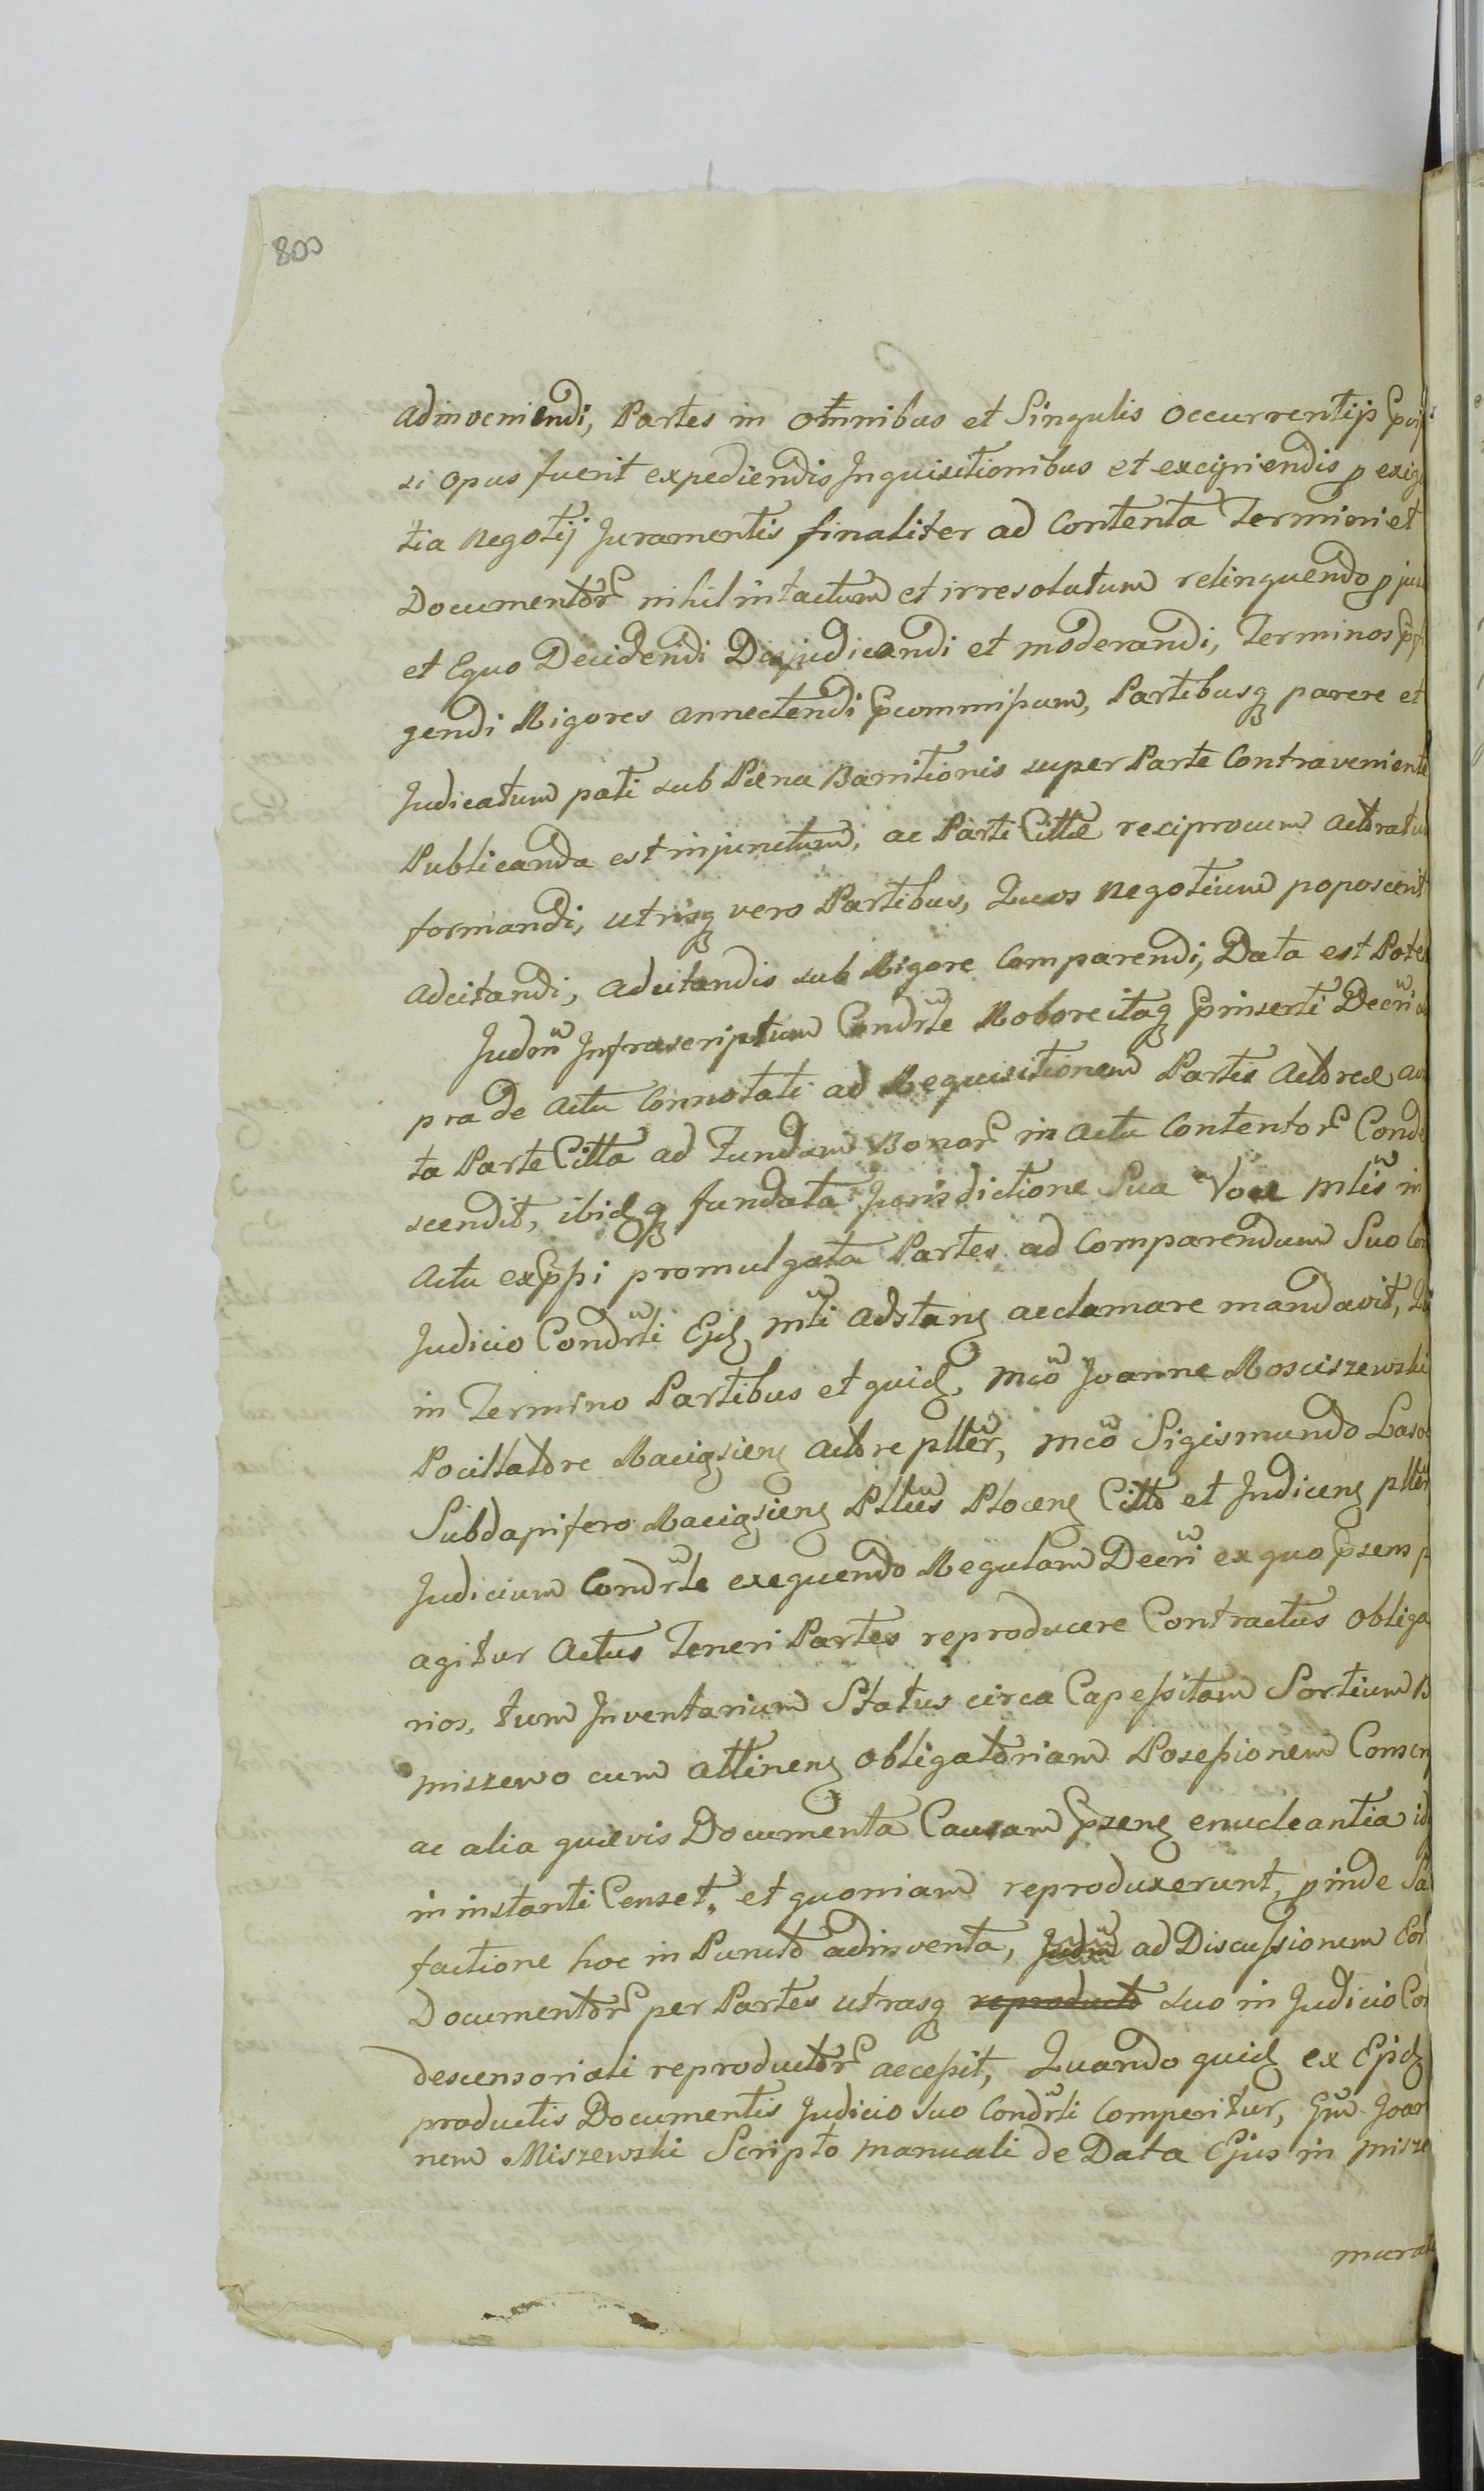 800
adinveniendi, Partes in omnibus et Singulis occurrentijs
si opus fuerit expediendis Inquisitionibus et excipiendis p exige
tia negotij Juramentis finaliter ad Contenta Termini et
Documentor nihil intactum et irresolutum relinquendo p jure
et Equo Decidendi Dijudicandi et moderandi, Terminos
gendi Rigores annectendi Pcommissum, Partibusq parere et
Judicatum pati sub Pæna Bannitionis super Parte Contraveniente
Publicanda est injunctum, ac Parti Cittæ reciprocum actoratum
formandi, utrisq vero Partibus, Quos negotium poposcerit
adcitandi, adcitandis sub Rigore Comparendi, Data est Potes
Judm Infrascriptum Condrle Robore itaq Pinserti Decri
pra de actu Connotati ad Requisitionem Partis actoreæ
ta Parte Citta ad Fundum Bonor in actu Contentor Conde
scendit, ibidq fundata Jurisdictione Sua Voce Mlis in
actu exPssi promulgata Partes ad Comparendum Suo Con
Judicio Condrli Ejd Mli adstang acclamare mandavit,
in Termino Partibus et quid, Mco Joanne Mosciszewski
Pocillatore Raciązieng actore pller, Mco Sigismundo Laso
Subdapifero Raciązieng Plleus Ploceng Citto et Judiceng pller
Judicium Condrle exequendo Regulam Decri ex quo Psens p
agitur actus Teneri Partes reproducere Contractus obliga
rios, tum Inventarium Status circa Capessitam Sortium B
miszewo cum attineng obligatoriam Posessionem Consen
ac alia quævis Documenta Causam Pseng enucleantia id
in instanti Censet, et quoniam reproduxerunt, pinde Sa
factione hoc in Puncto adinventa, Judm ad Discussionem
Documentor per Partes utrasq reproducto suo in Judicio Con
descensoriali reproductor accessit, Quando quid ex Ejsd
productis Documentis Judicio suo Condrli Comperitur, Gm Joan
nem Miszewski Scripto manuali de Data Ejus in misze
murat